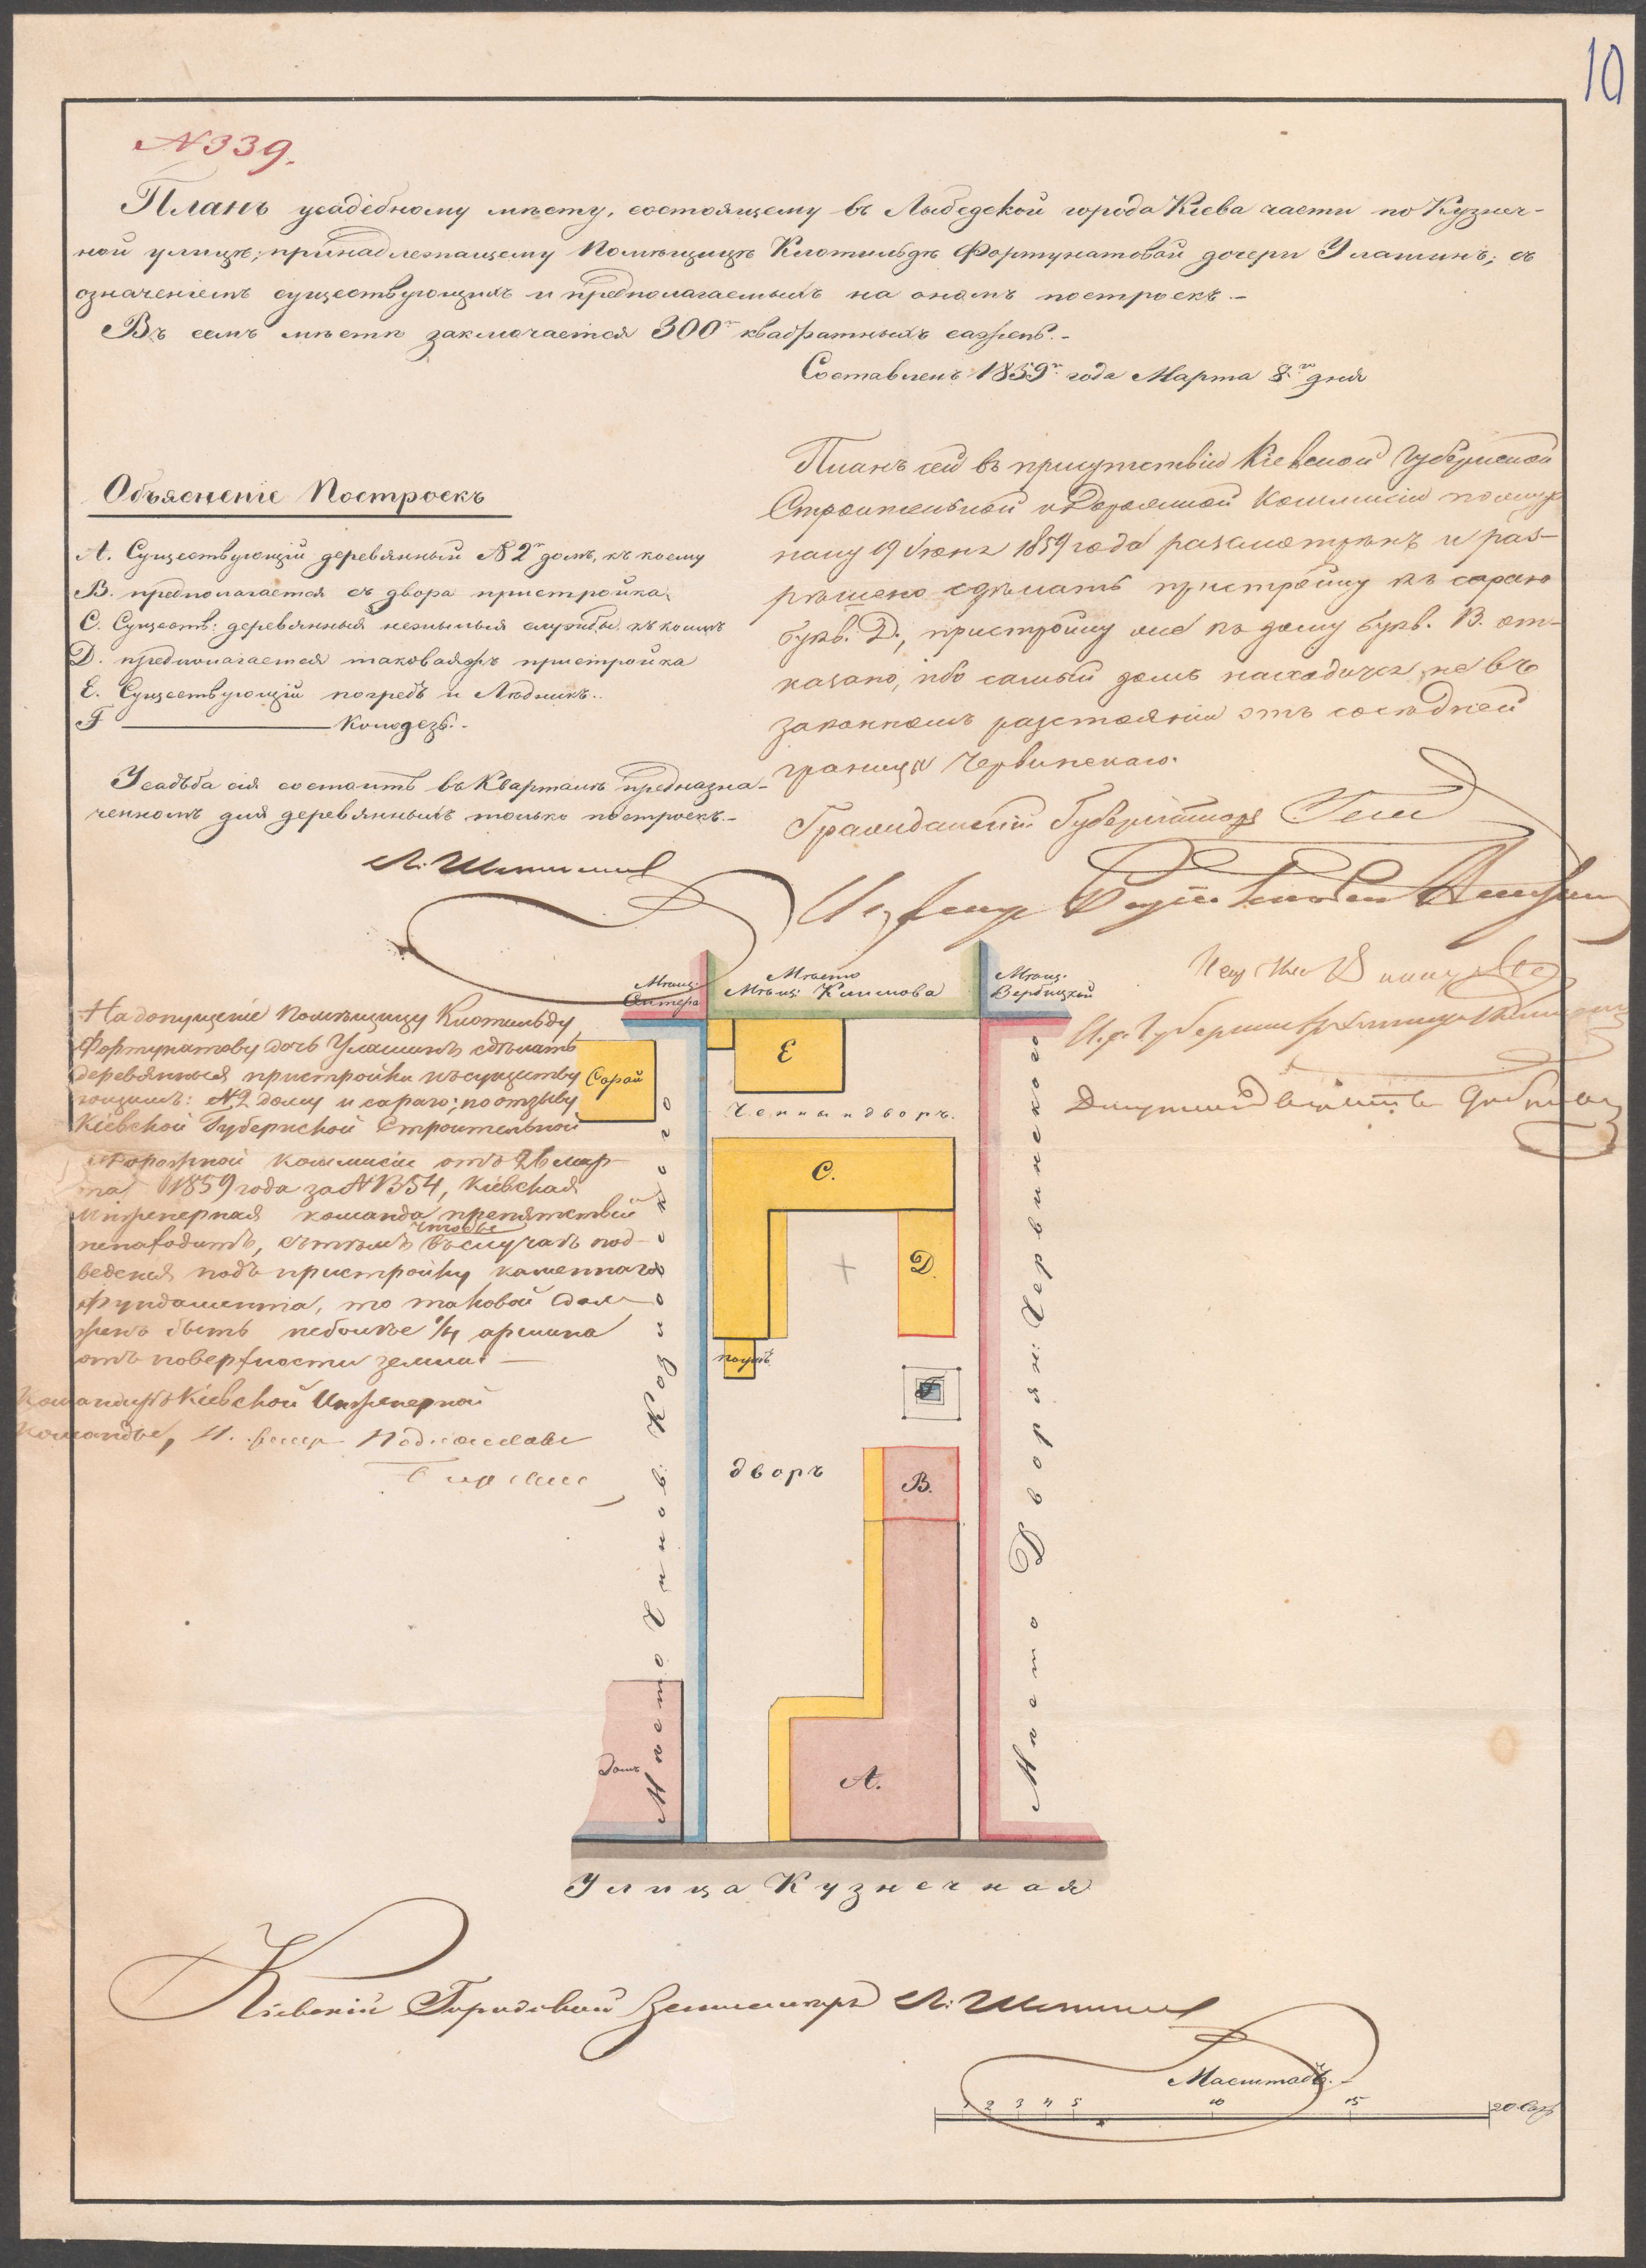 10
N 339.
Планъ усадебному мѣсту, состоящему въ Лыбедской города Кіева части по Кузнеч-
ной улицѣ; принадлежащему Помѣщицѣ Клотильдѣ Фортунатовой дочери Улашинъ; съ
означеніемъ существующихъ и предполагаемыхъ на ономъ построекъ.-
Въ семъ мѣстѣ заключается 300 квадратныхъ сажень.-
Составленъ 1859го года Марта 8го дня
Объясненіе Построекъ
А. Существующій деревянный № 2й домъ, къ коему
В. предполагается съ двора пристройка.
С. Существ: деревянныя нежилыя службы къ коимъ
D. предполагается таковаяжъ пристройка
Е. Существующій погребъ и Ледникъ..
F ———— Колодезь.-
Усадьба сія состоитъ въ Кварталѣ предназна-
ченномъ для деревянныхъ только построекъ.-
Планъ сей въ присутствіи Кіевской Губернской
Строительной и Дорожной Коммисіи
19 Іюня 1859 года разсмотрѣнъ и раз-
рѣшено сдѣлать пристройку къ сараю
букв. D., пристройку же къ дому букв. В. от-
казано, ибо самый домъ находится не въ
законномъ разстояніи отъ сосѣдней
границы Червинскаго.
Гражданскій Губернаторъ
На допущеніе Помѣщицу Клотильду
Фортунатову дочь Улашинъ сдѣлать
деревянныя пристройки къ существу
ющимъ: №2 дому и сараю; по отзыву
Кіевской Губернской Строительной
и Дорожной коммисіи отъ 26 мар-
та 1859 года за № 1354, Кіевская
Инженерная команда препятствій
ненаходитъ, съ тѣмъ чтобы въ случаѣ под-
веденія подъ пристройку каменнаго
фундамента, то таковой дол-
женъ быть неболѣе 1/4 аршина
отъ поверхности земли. —
Командиръ Кіевской Инженерной
Команды,
Мѣщ:
Мѣсто
Мѣщ: Климова
Мѣщ.
Вербицкой
Сарай
Е
Черный дворъ.
С.
D
F
дворъ
В.
А.
Домъ
Мѣсто Чинов: Козловского
Мѣсто Дворян: Червинского
Улица Кузнечная
Кіевскій Городовой Землемѣръ
Масштабъ.-
1 2 3 4 5 10 15 20 Саж